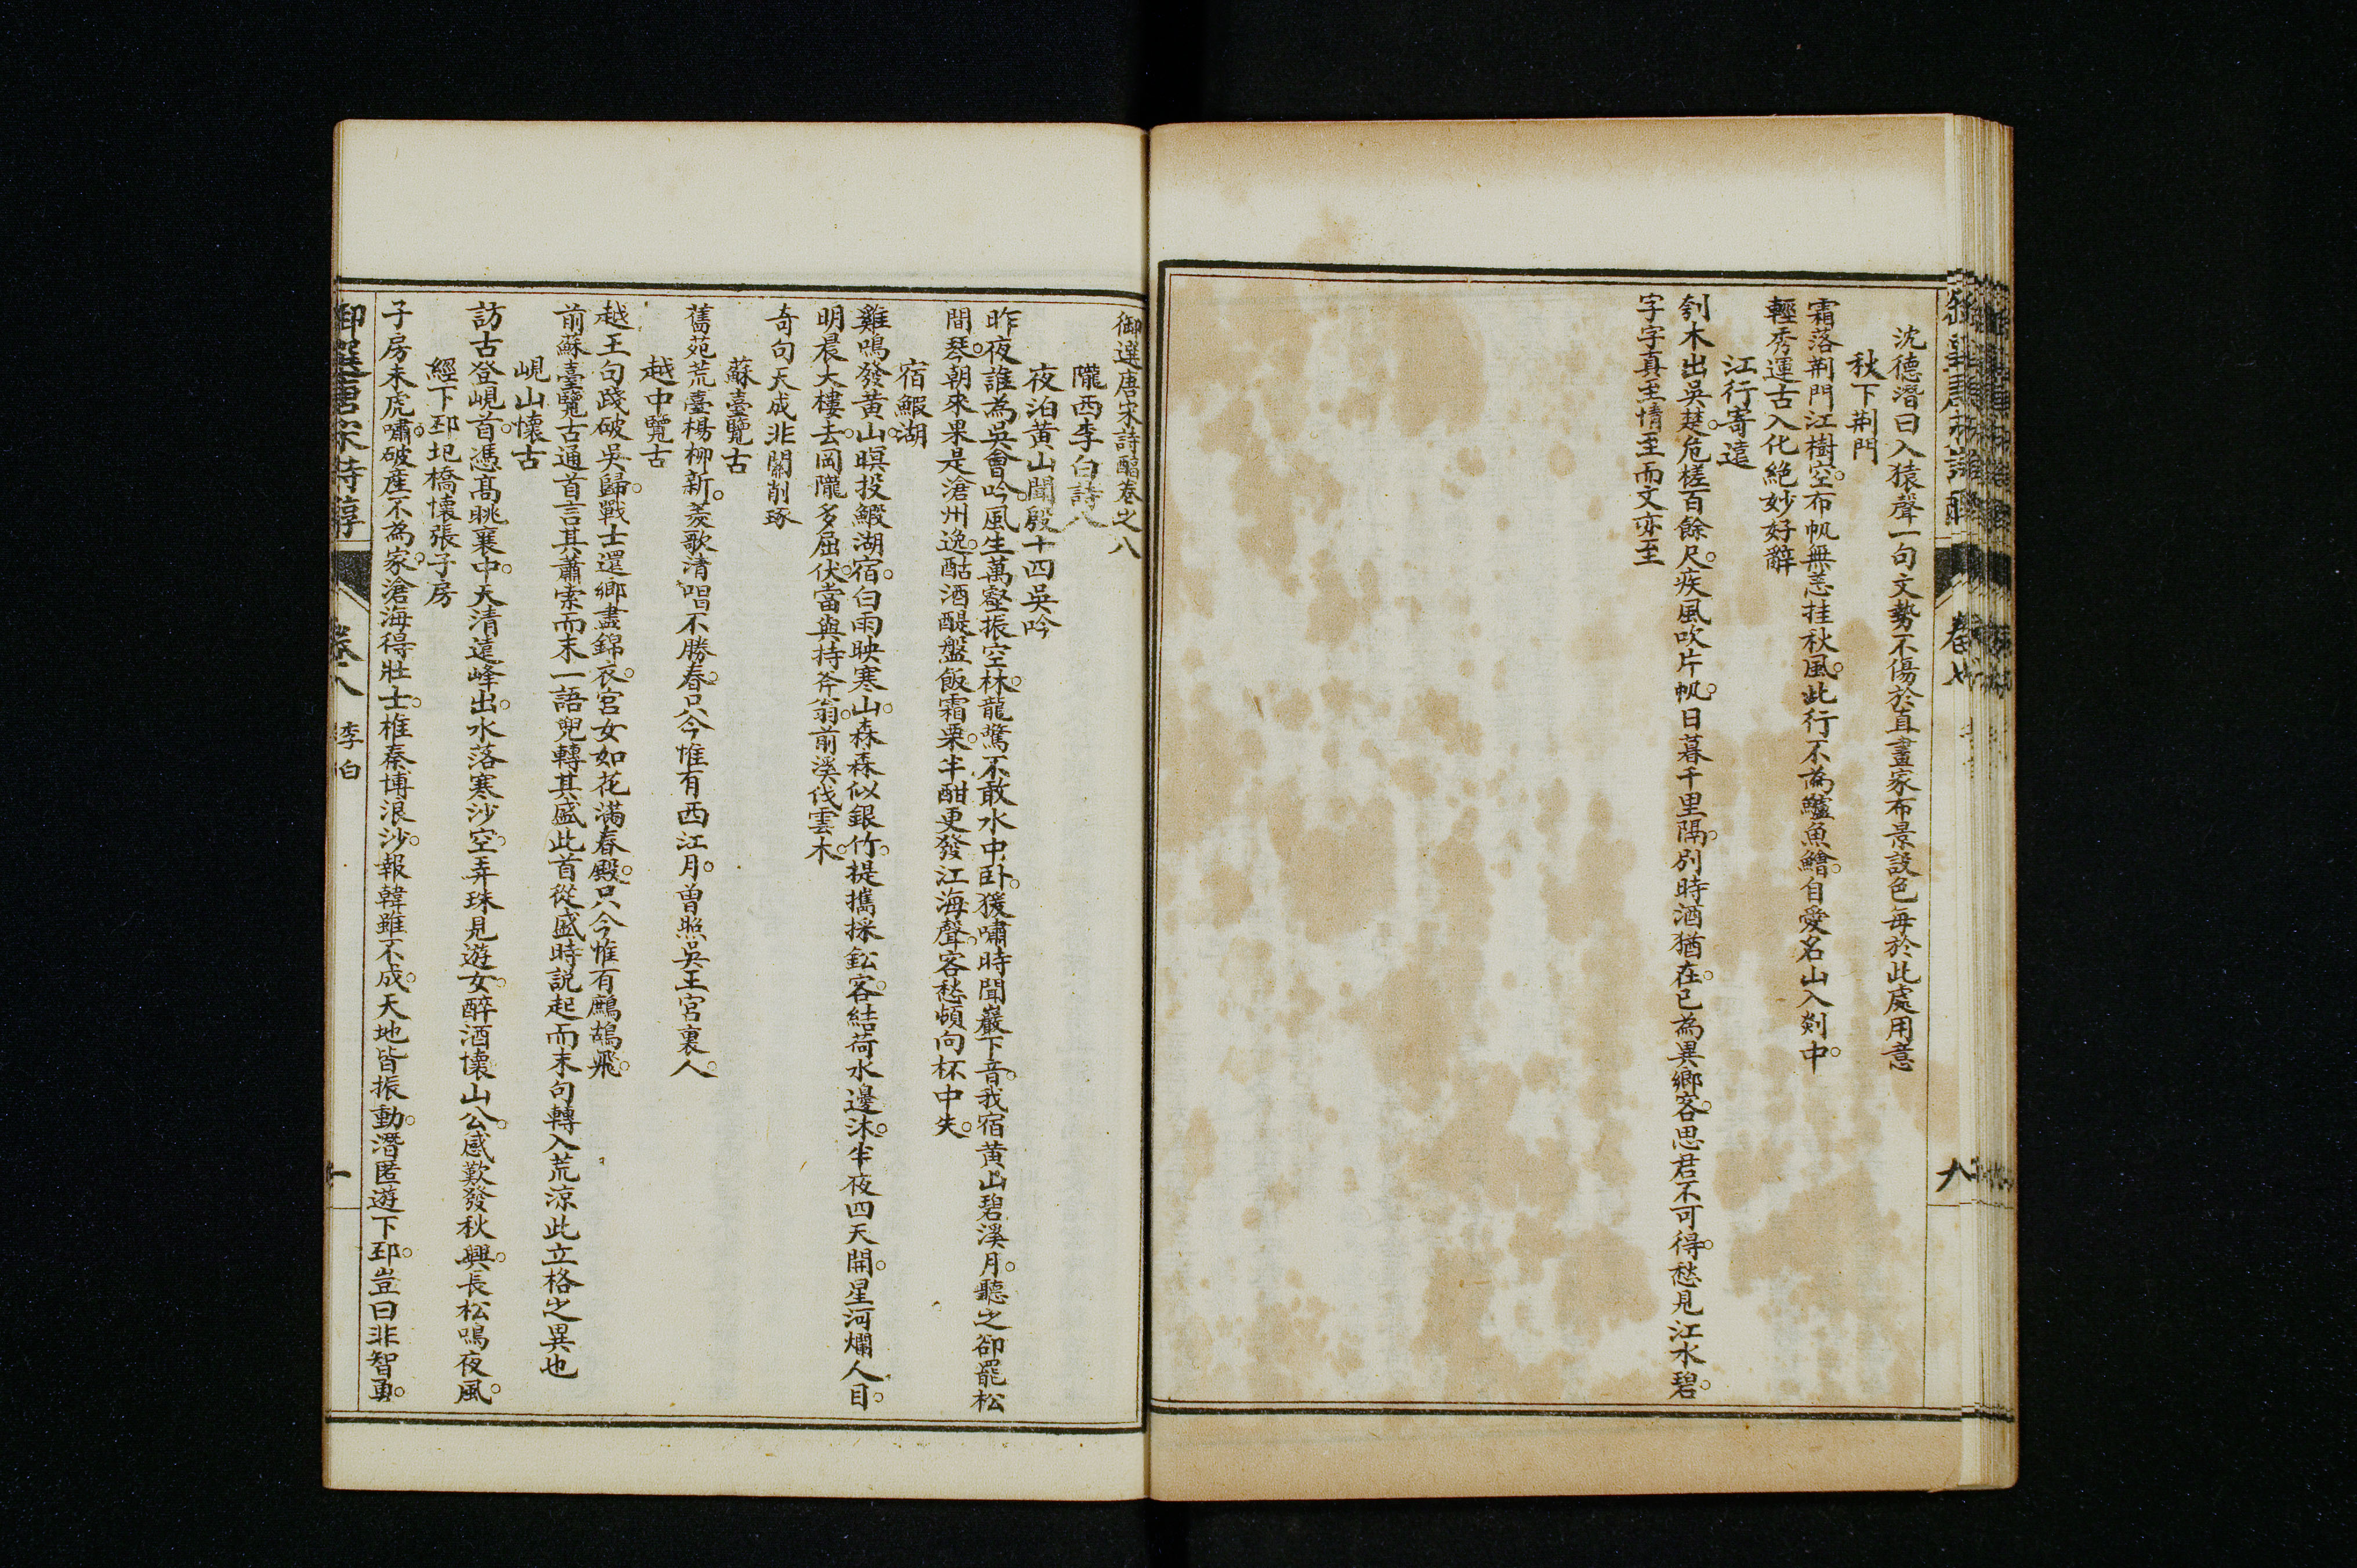 沈德潛曰入猿聲一句文勢不傷於直畫家布景設色每於此處用意
秋下荆門
霜落荆門江樹空。布帆無恙挂秋風。此行不為鱸魚鱠。自愛名山入剡中。
輕秀運古入化絶妙好辭
江行寄遠
刳木出吳楚。危槎百餘尺。疾風吹片帆。日暮千里隔。別時酒猶在。已為異鄉客。思君不可得。愁見江水碧。
字字真至情至而文亦至
卷七
八
御選唐宋詩醇卷之八
隴西李白詩八
夜泊黄山聞殷十四吳吟
昨夜誰為吳會吟。風生萬壑振空林。龍驚不敢水中卧。猨嘯時聞巖下音。我宿黄山碧溪月。聽之卻罷松
間琴。朝來果是滄州逸。酤酒醍盤飯霜栗。半酣更發江海聲。客愁頓向杯中失。
宿鰕湖
雞鳴發黄山。暝投鰕湖宿。白雨映寒山。森森似銀竹。提攜採鈆客。結荷水邊沐。半夜四天開。星河爛人目。
明晨大樓去。岡隴多屈伏。當與持斧翁。前溪伐雲木。
奇句天成非關削琢
蘇臺覽古
舊苑荒臺楊柳新。菱歌清唱不勝春。只今惟有西江月。曾照吳王宮裏人。
越中覽古
越王句踐破吳歸。戰士還鄉盡錦衣。宮女如花滿春殿。只今惟有鷓鴣飛。
前蘇臺覽古通首言其蕭索而末一語兜轉其盛此首從盛時説起而末句轉入荒凉此立格之異也
峴山懷古
訪古登峴首。憑高眺襄中。天清遠峰出。水落寒沙空。弄珠見遊女。醉酒懷山公。感歎發秋興。長松鳴夜風。
經下邳圯橋懷張子房
子房未虎嘯。破產不為家。滄海得壯士。椎秦博浪沙。報韓雖不成。天地皆振動。潛匿遊下邳。豈曰非智勇。
御選唐宋詩醇
卷八
李白
一